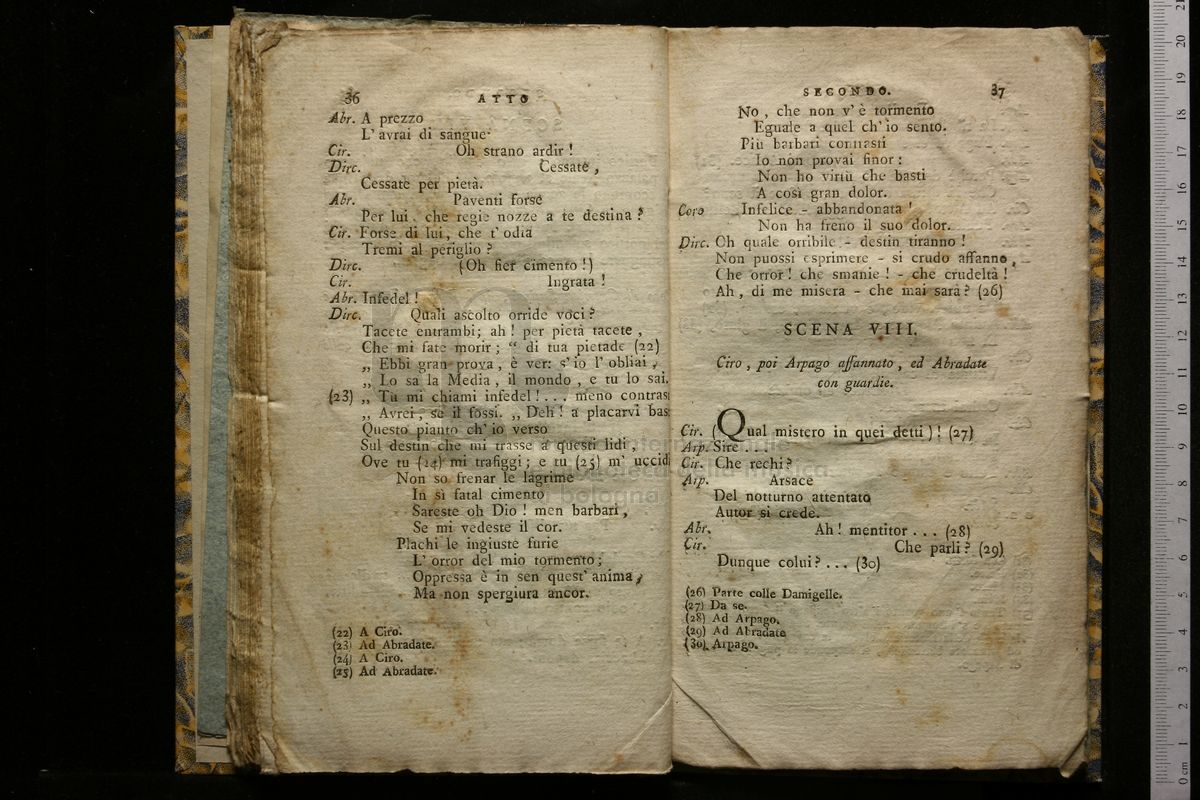 36 ATTO
Abr. A prezzo
L' avrai di sangue.
Cir. Oh strano ardir !
Dirc. Cessate ,
Cessate per pietà.
Abr. Paventi forse
Per lui, che regie nozze a te destina ?
Cir. Forse di lui, che t' odia
Tremi al periglio ?
Dirc. (Oh fier cimento !)
Cir. Ingrata !
Abr. Infedel !
Dirc. Quali ascolto orride voci ?
Tacete entrambi; ah ! per pietà tacete ,
Che mi fate morir ; “ di tua pietade (22)
„ Ebbi gran prova , è ver: s' io l' obliai ,
„ Lo sa la Media , il mondo , e tu lo sai.
(23) „ Tu mi chiami infedel ! . . . meno contras
„ Avrei , se il fossi. „ Deh ! a placarvi bas
Questo pianto ch' io verso
Sul destin che mi trasse a questi lidi ,
Ove tu (24) mi trafiggi ; e tu (25) m' uccid
Non so frenar le lagrime
In sì fatal cimento
Sareste oh Dio ! men barbari ,
Se mi vedeste il cor.
Plachi le ingiuste furie
L' orror del mio tormento ;
Oppressa è in sen quest' anima ,
Ma non spergiura ancor.
(22) A Ciro.
(23) Ad Abradate.
(24) A Ciro.
(25) Ad Abradate.
SECONDO. 37
No , che non v' è tormento
Eguale a quel ch' io sento.
Più barbari contrasti
Io non provai finor :
Non ho virtù che basti
A così gran dolor.
Coro Infelice - abbandonata !
Non ha freno il suo dolor.
Dirc. Oh quale orribile - destin tiranno !
Non puossi esprimere - si crudo affanno ,
Che orror ! che smanie ! - che crudeltà !
Ah , di me misera - che mai sarà ? (26)
SCENA VIII.
Ciro , poi Arpago affannato , ed Abradate
con guardie.
Cir. (Qual mistero in quei detti) ! (27)
Arp. Sire . . .
Cir. Che rechi ?
Arp. Arsace
Del notturno attentato
Autor si crede.
Abr. Ah ! mentitor . . . (28)
Cir. Che parli ? (29)
Dunque colui ? . . . (30)
(26) Parte colle Damigelle.
(27) Da se.
(28) Ad Arpago.
(29) Ad Abradate
(30) Arpago.
museo internazionale
e biblioteca della musica
di bologna
0 cm 1 2 3 4 5 6 7 8 9 10 11 12 13 14 15 16 17 18 19 20 21